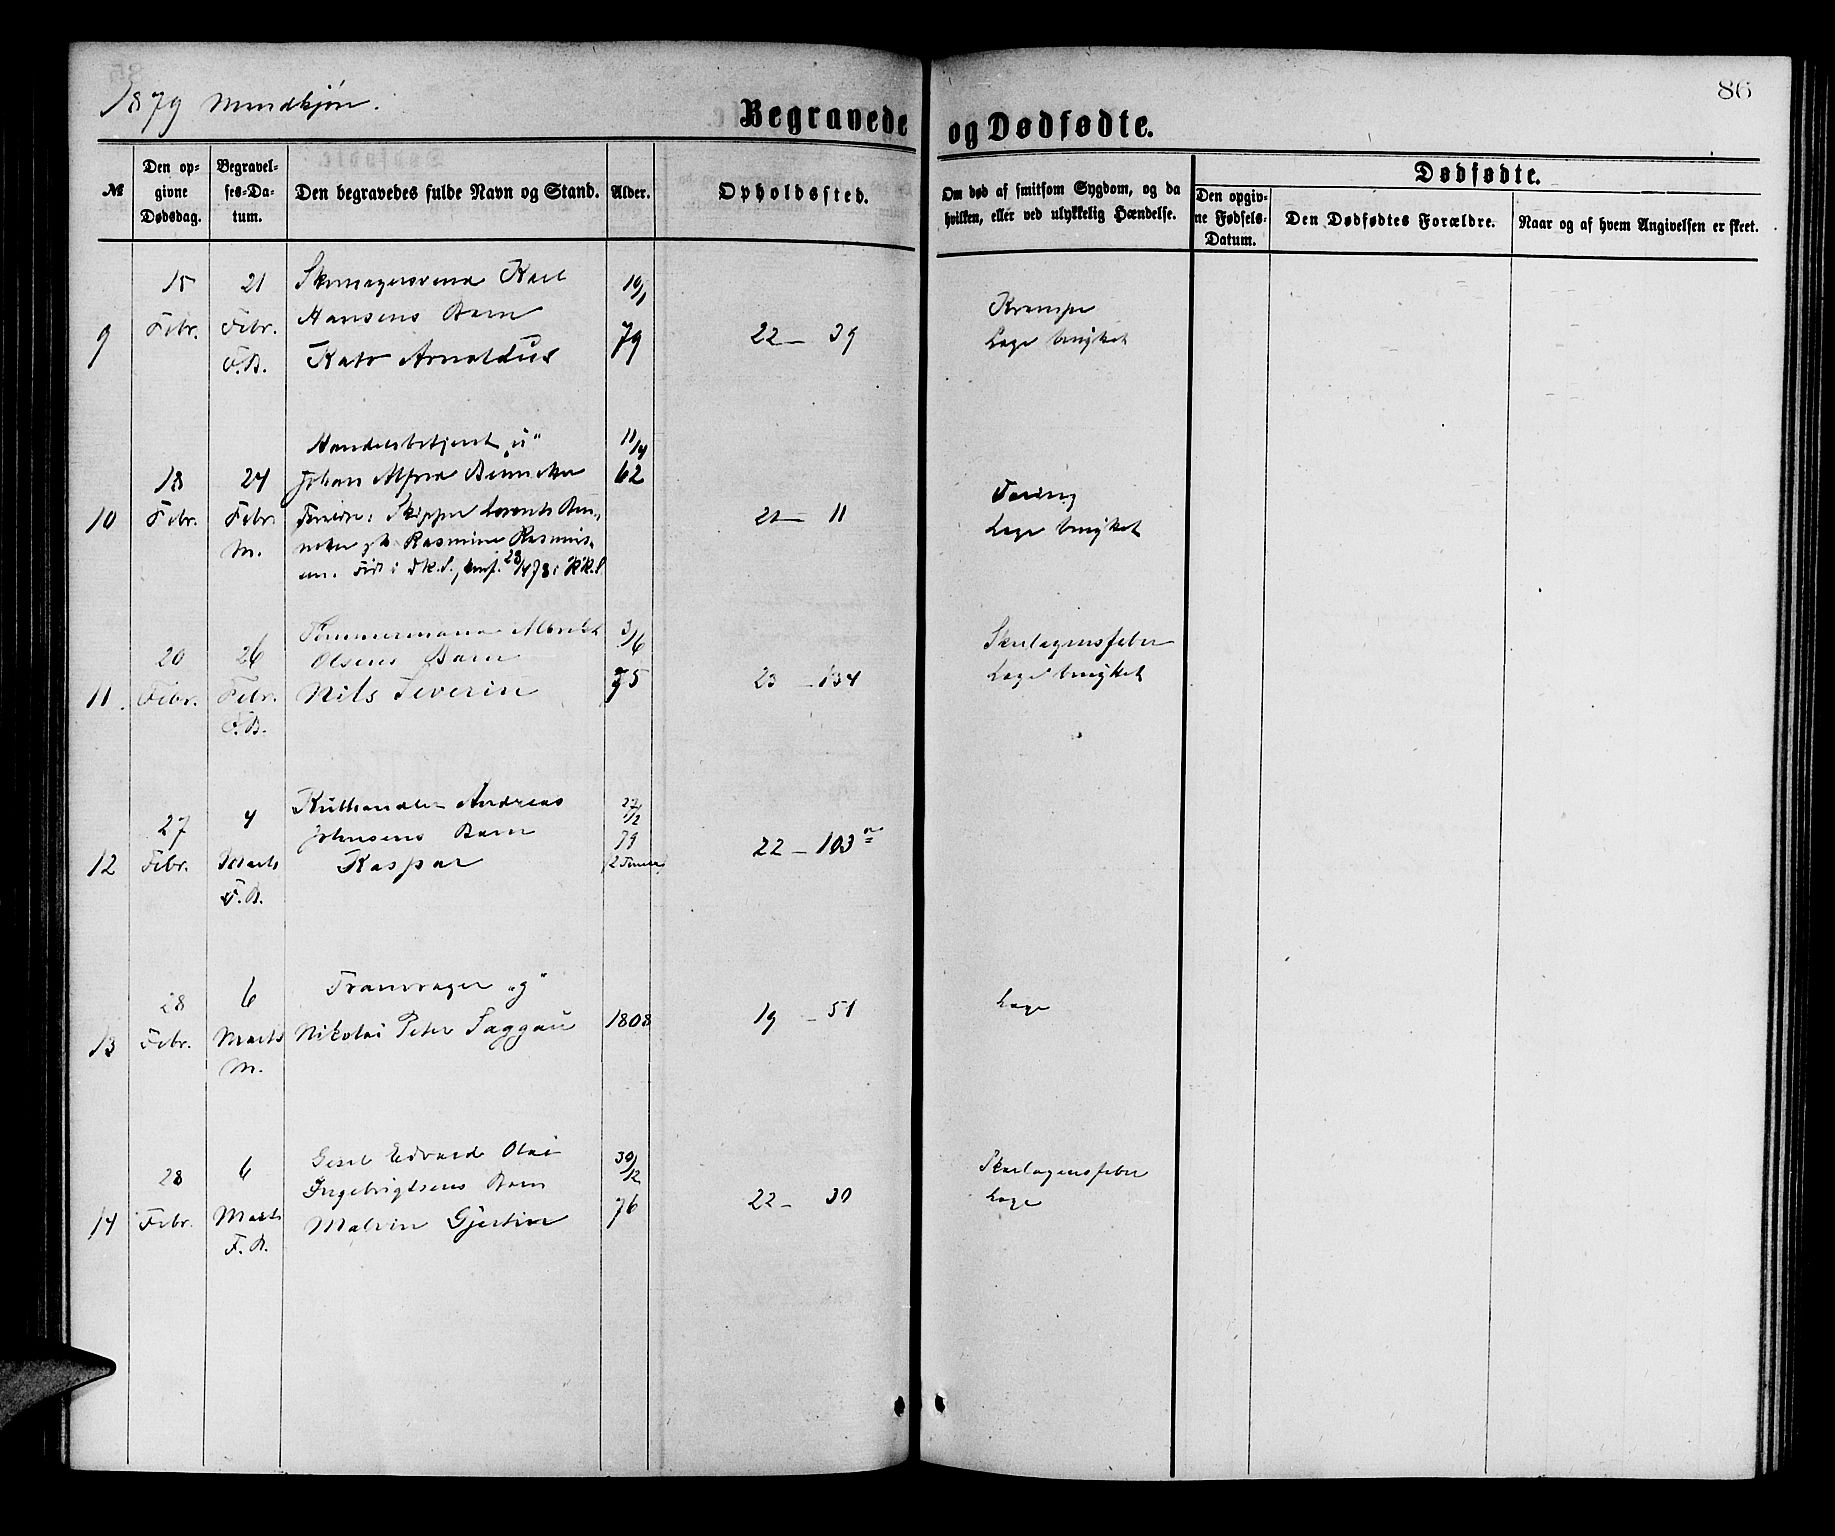 86
1879 Mandkjøn.
Begravede og Dødfødte.
№
Den op-
givne
Dødsdag.
Begravel-
ses-Da-
tum.
Den begravedes fulde Navn og Stand.
Alder.
Opholdssted.
Om død af smitsom Sygdom, og da
hvilken, eller ved ulykkelig Hændelse.
Dødfødte.
Den opgiv-
ne Fødsels-
Datum.
Den Dødfødtes Forældre.
Naar og af hvem Angivelsen er skeet.
9
15
Febr.
21
Febr.
F.B.
Skomagersvend Karl
Hansens Barn
Kato Arnoldus
10/1
79
22 — 39
Krampe
Læge benyttet
10
18
Febr.
24
Febr.
M.
Handelsbetjent „u"
Johan Alfred
Forældre: Skipper Lorents
Rasmine Rasmus-
11/4
62
21 — 11
Tæring
Læge benyttet
11.
20
Febr.
26
Febr.
F.B.
Tømmermand Albrikt
Olsens Barn
Nils Severin
3/6
75
23 — 134
Skarlagensfeber
Læge benyttet
12
27
Febr.
4
Marts
F.B.
Kulhandler Andreas
Johnsens Barn
Kaspar
27/2
79
(2 Timer)
22 — 103
13
28
Febr.
6
Marts
M.
„g"
Nikolai Peter Saggau
1808
19 — 51
Læge
14
28
Febr.
6
Marts
F.B.
Edvard Olai
Ingebrigtsens Barn
Malvin Gjertin
30/12
76
22 — 30
Skarlagensfeber
Læge